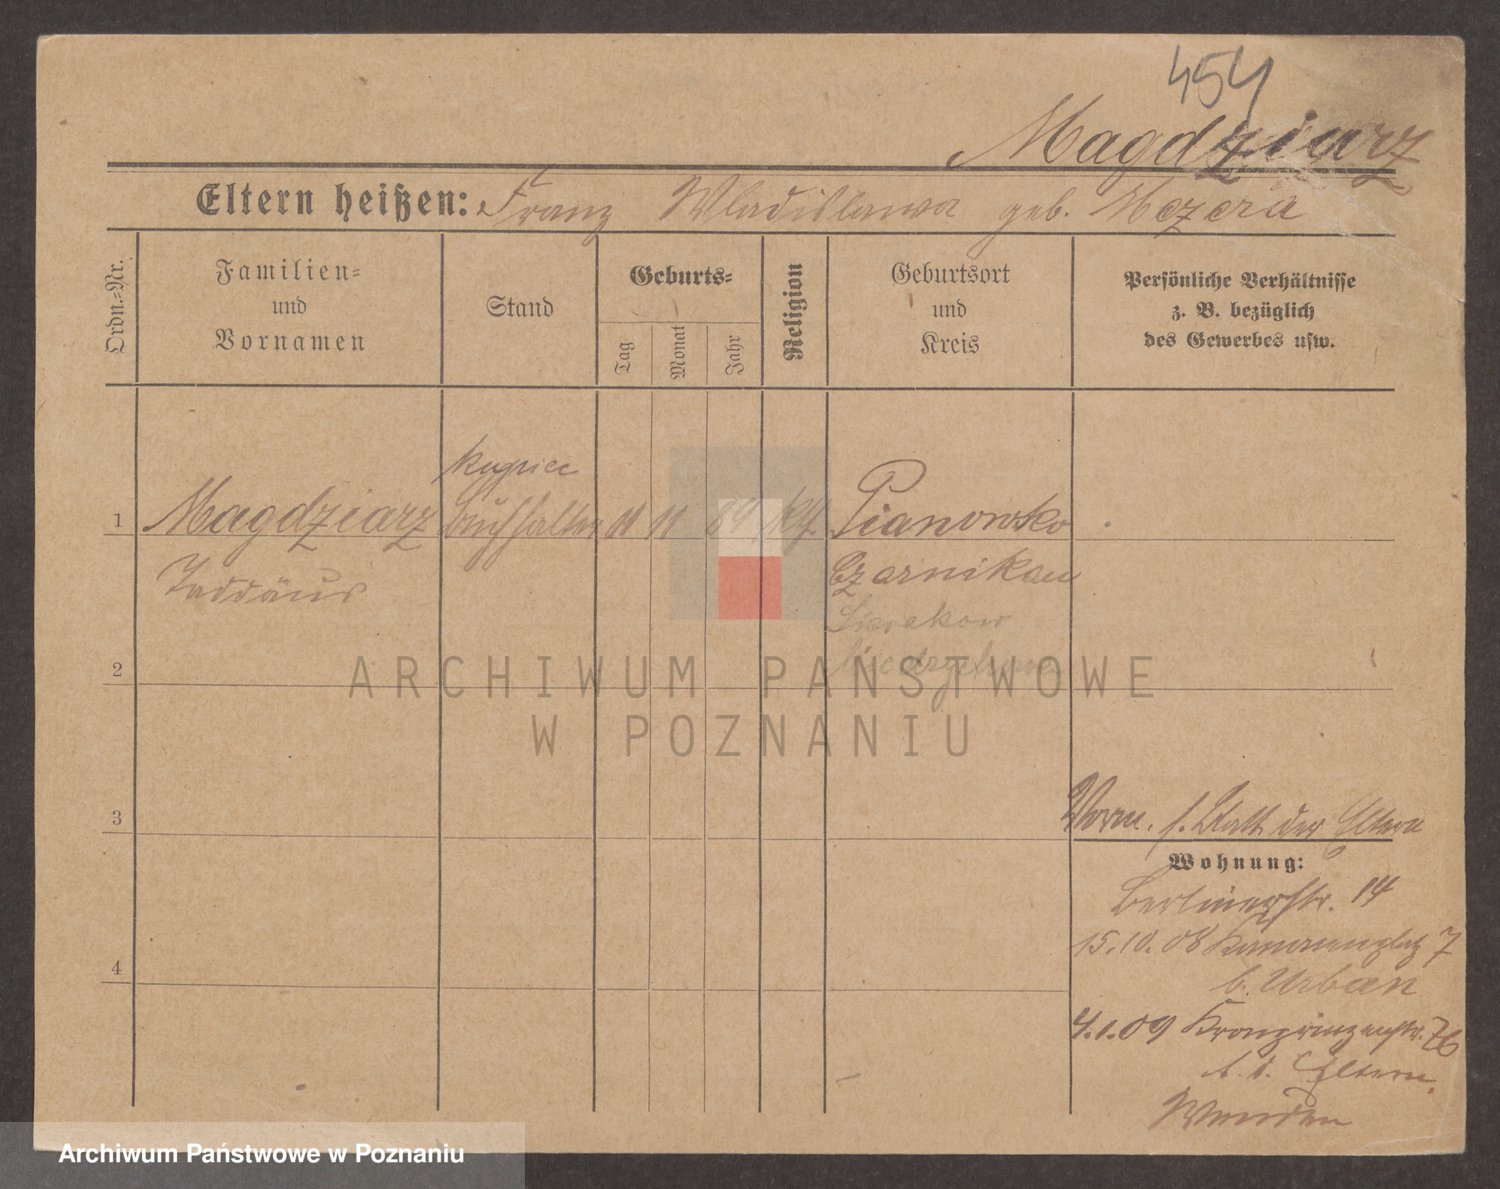 454
Magdziarz
Eltern heißen: Franz Wladislawa geb. Mezera
Ordn.=Nr.
Familien=
und
Vornamen
Stand
Geburts=
Tag
Monat
Jahr
Religion
Geburtsort
und
Kreis
Persönliche Verhältnisse
z. B. bezüglich
des Gewerbes usw.
kupiec
1 Magdziarz Buchhalter 11 11 89 kth Pianowko
Taddäus Czarnikau
Sierakow
2
3
Vorm. s. Blatt der Eltern
Wohnung:
Berlinerstr. 14
15.10.08 7
b. Urban
4
4.1.09 Kronprinzenstr. 76
b. d. Eltern.
ARCHIWUM PAŃSTWOWE
W POZNANIU
Archiwum Państwowe w Poznaniu